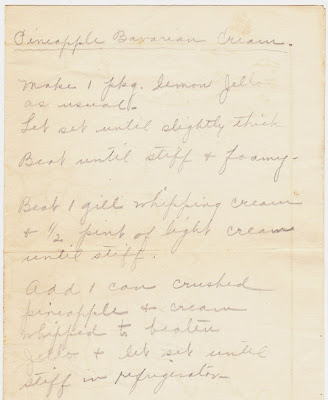 Pineapple Bavarean Cream.
Make 1 pkg. lemon Jello
as usual.
Let set until slightly thick
Beat until stiff & foamy.
Beat 1 gill whipping cream
& 1/2 pint of light cream
until stiff.
Add 1 can crushed
pineapple & cream
whipped to beaten
Jello & let set until
stiff in refrigerator